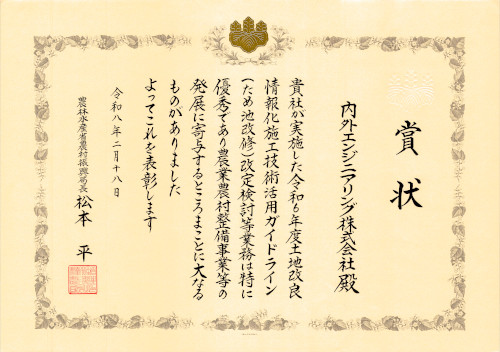 賞状
内外エンジニアリング株式会社殿
貴社が実施した令和6年度土地改良
情報化施工技術活用ガイドライン
(ため池改修)改定検討等業務は特に
優秀であり農業農村整備事業等の
発展に寄与するところまことに大なる
ものがありました
よってこれを表彰します
令和八年二月十八日
農林水産省農村振興局長 松本 平